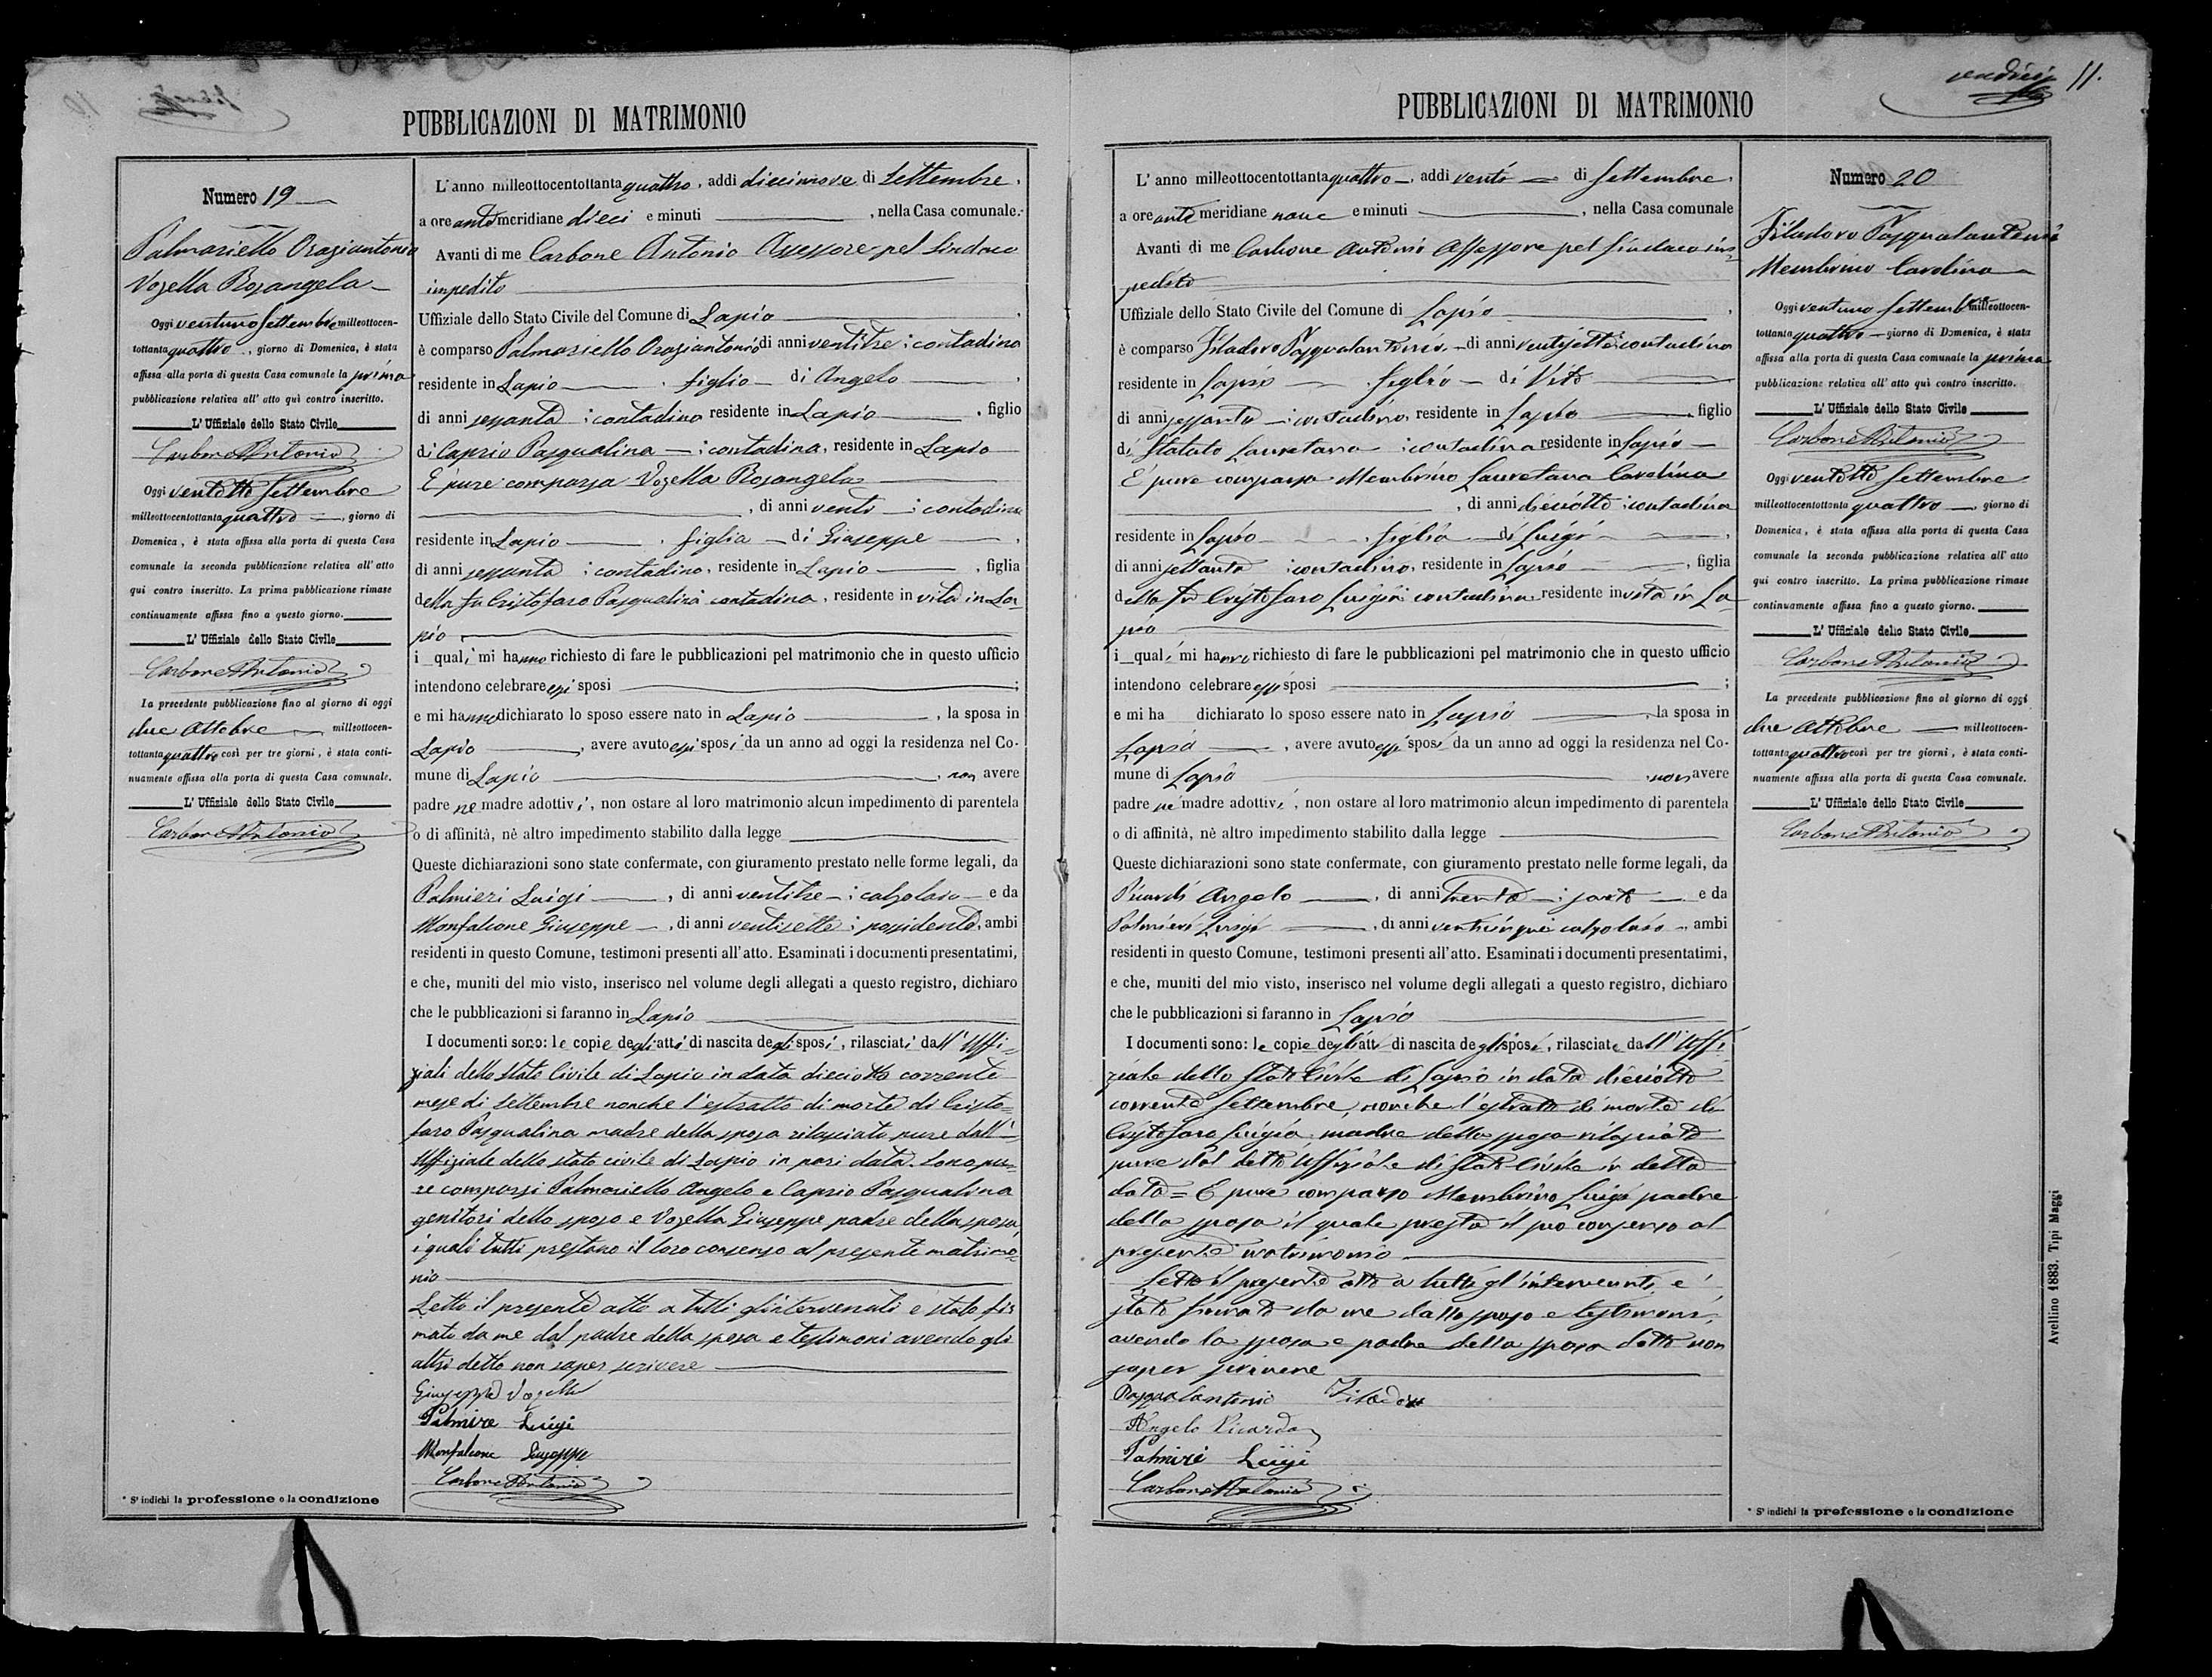 PUBBLICAZIONI DI MATRIMONIO
Numero 19
Palmariello Oraziantonio
Vozella Rosangela
Oggi ventuno Settembre milleottocen-
tottantaquattro, giorno di Domenica, è stata
affissa alla porta di questa Casa comunale la prima
pubblicazione relativa all' atto quì contro inscritto.
L' Uffiziale dello Stato Civile
Carbone Antonio
Oggi ventotto Settembre
milleottocentottantaquattro, giorno di
Domenica, è stata affissa alla porta di questa Casa
comunale la seconda pubblicazione relativa all' atto
qui contro inscritto. La prima pubblicazione rimase
continuamente affissa fino a questo giorno.
L' Uffiziale dello Stato Civile
Carbone Antonio
La precedente pubblicazione fino al giorno di oggi
due Ottobre milleottocen-
tottantaquattro così per tre giorni, è stata conti-
nuamente affissa alla porta di questa Casa comunale.
L' Uffiziale dello Stato Civile
Carbone Antonio
* S' indichi la professione o la condizione
L' anno milleottocentottantaquattro, addi diecinove di Settembre,
a ore antimeridiane dieci e minuti , nella Casa comunale.
Avanti di me Carbone Antonio Assessore pel Sindaco
impedito
Uffiziale dello Stato Civile del Comune di Lapio
è comparso Palmariello Oraziantonio di anni ventitre : contadino
residente in Lapio , figlio di Angelo ,
di anni sessanta : contadino residente in Lapio , figlio
di Caprio Pasqualina : contadina, residente in Lapio
È pure comparsa Vozella Rosangela
, di anni venti : contadina
residente in Lapio , figlia di Giuseppe ,
di anni sessanta : contadino, residente in Lapio , figlia
della fu Cristofaro Pasqualina contadina, residente in vita in La-
pio
i quali mi hanno richiesto di fare le pubblicazioni pel matrimonio che in questo ufficio
intendono celebrare essi sposi ;
e mi hanno dichiarato lo sposo essere nato in Lapio , la sposa in
Lapio , avere avuto essi sposi da un anno ad oggi la residenza nel Co-
mune di Lapio , non avere
padre nè madre adottivi, non ostare al loro matrimonio alcun impedimento di parentela
o di affinità, nè altro impedimento stabilito dalla legge
Queste dichiarazioni sono state confermate, con giuramento prestato nelle forme legali, da
Palmieri Luigi , di anni ventitre : calzolaio e da
Monfalcone Giuseppe , di anni ventisette : possidente, ambi
residenti in questo Comune, testimoni presenti all' atto. Esaminati i documenti presentatimi,
e che, muniti del mio visto, inserisco nel volume degli allegati a questo registro, dichiaro
che le pubblicazioni si faranno in Lapio
I documenti sono: le copie degli atti di nascita degli sposi, rilasciati dall' Uffi-
ziali dello Stato Civile di Lapio in data dieciotto corrente
mese di Settembre nonche l'estratto di morte di Cristo=
faro Pasqualina madre della sposa rilasciato pure dall'
Uffiziale dello stato civile di Lapio in pari data. Sono pu=
re comparsi Palmariello Angelo e Caprio Pasqualina
genitori dello sposo e Vozella Giuseppe padre della sposa
i quali tutti prestano il loro consenso al presente matrimo=
nio
Letto il presente atto a tutti gl'intervenuti e stato fir
mato da me dal padre della sposa e testimoni avendo gli
altri detto non saper scrivere
Giuseppe Vozella
Palmire Luigi
Monfalcone Giuseppe
Carbone Antonio
PUBBLICAZIONI DI MATRIMONIO
undici 11.
L' anno milleottocentottantaquattro, addi venti di Settembre,
a ore antimeridiane nove e minuti , nella Casa comunale
Avanti di me Carbone Antonio Assessore pel Sindaco im=
pedito
Uffiziale dello Stato Civile del Comune di Lapio
è comparso Filadoro Pasqualantonio, di anni ventisette : contadino
residente in Lapio , figlio di Vito
di anni sessanta : contadino, residente in Lapio , figlio
di Statuto Lauretana : contadina residente in Lapio
È pure comparsa Membrino Lauretana Carolina
, di anni dieciotto : contadina
residente in Lapio , figlia di Luigi ,
di anni settanta : contadino, residente in Lapio , figlia
della fu Cristofaro Luigia contadina residente in vita in La-
pio
i quali mi hanno richiesto di fare le pubblicazioni pel matrimonio che in questo ufficio
intendono celebrare essi sposi ;
e mi ha dichiarato lo sposo essere nato in Lapio , la sposa in
Lapio , avere avuto essi sposi da un anno ad oggi la residenza nel Co-
mune di Lapio , non avere
padre nè madre adottivi, non ostare al loro matrimonio alcun impedimento di parentela
o di affinità, nè altro impedimento stabilito dalla legge
Queste dichiarazioni sono state confermate, con giuramento prestato nelle forme legali, da
Angelo , di anni trenta : sarto e da
Palmieri Luigi , di anni venticinque calzolaio, ambi
residenti in questo Comune, testimoni presenti all' atto. Esaminati i documenti presentatimi,
e che, muniti del mio visto, inserisco nel volume degli allegati a questo registro, dichiaro
che le pubblicazioni si faranno in Lapio
I documenti sono: le copie degli atti di nascita degli sposi, rilasciate dall' Uffi-
ziale dello Stato Civile di Lapio in data dieciotto
corrente Settembre, nonche l'estratto di morte di
Cristofaro Luigia, madre della sposa rilasciato
pure dal detto Uffiziale di Stato Civile in detta
data = È pure comparso Membrino Luigi padre
della sposa il quale presta il suo consenso al
presente matrimonio
Letto il presente atto a tutti gl'intervenuti, e'
stato firmato da me dallo sposo e testimoni,
avendo la sposa e padre della sposa detto non
saper scrivere
Pasqualantonio Filadoro
Angelo
Palmiri Luigi
Carbone Antonio
Numero 20
Filadoro Pasqualantonio
Membrino Carolina
Oggi ventuno Settembre milleottocen-
tottantaquattro giorno di Domenica, è stata
affissa alla porta di questa Casa comunale la prima
pubblicazione relativa all' atto quì contro inscritto.
L' Uffiziale dello Stato Civile
Carbone Antonio
Oggi ventotto Settembre
milleottocentottanta quattro giorno di
Domenica, è stata affissa alla porta di questa Casa
comunale la seconda pubblicazione relativa all' atto
qui contro inscritto. La prima pubblicazione rimase
continuamente affissa fino a questo giorno.
L' Uffiziale dello Stato Civile
Carbone Antonio
La precedente pubblicazione fino al giorno di oggi
due Ottobre milleottocen-
tottantaquattro così per tre giorni, è stata conti-
nuamente affissa alla porta di questa Casa comunale.
L' Uffiziale dello Stato Civile
Carbone Antonio
* S' indichi la professione o la condizione
Avellino 1883. Tipi Maggi